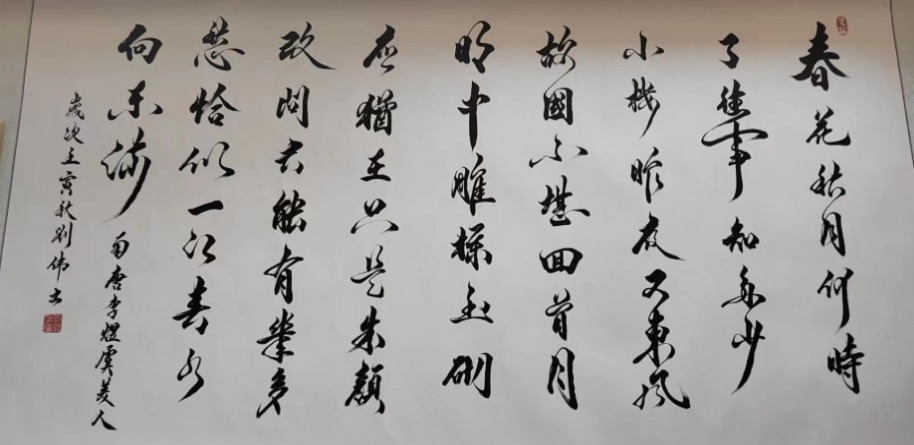 春花秋月何時
了往事知多少
小樓昨夜又東風
故國不堪回首月
明中雕欄玉砌
應猶在只是朱顏
改問君能有幾多
愁恰似一江春水
向东流
南唐李煜虞美人
歲次壬寅秋刘伟书